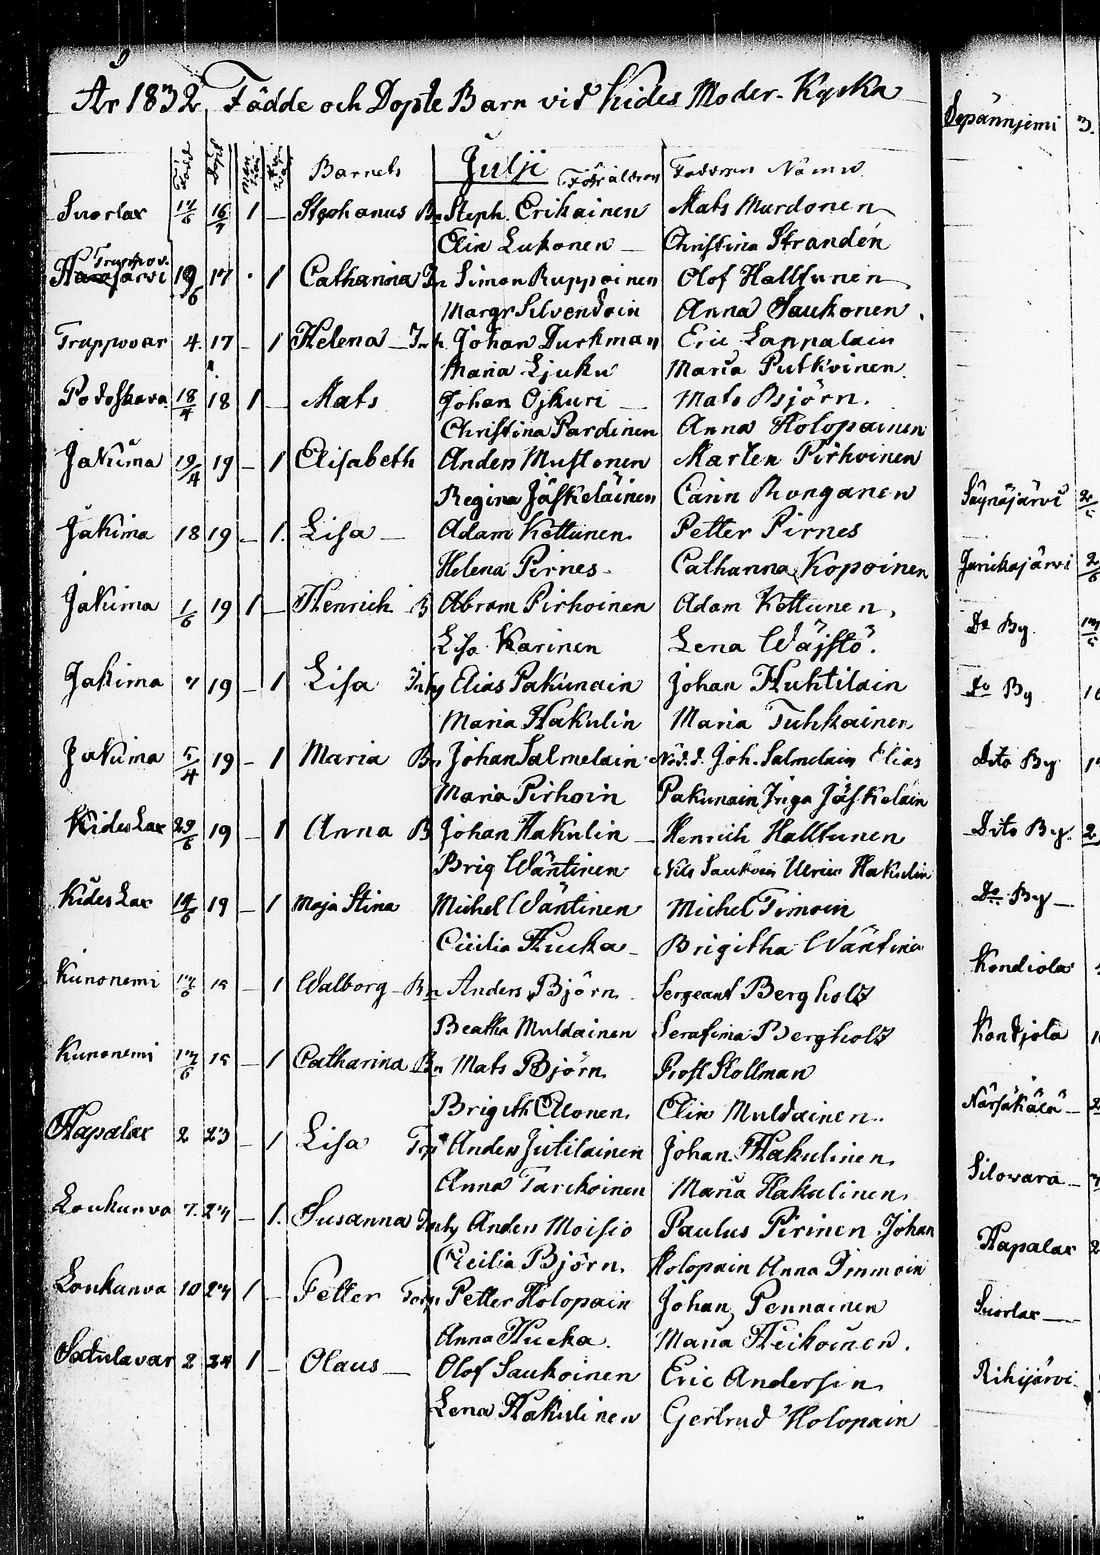 År 1832, Födde och Döpte Barn vid Kides Moder-Kyrka
Barnets Julji Föräldrar Faddrars Namn
Suorlax 17/6 16/7 1 — Stephanus Bn Steph. Erikainen Mats Murdonen
Elin Lukonen — Christina Strandén
Truppov.
järvi 19/6 17 · 1 Catharina In Simon Ruppoinen Olof Halltunen
Margr Silvendoin Anna Saukonen.
Truppwar 4. 17 — 1 Helena — Johan Durkman Eric Lappalain
Maria Ljuku Maria Putkoinen.
Potoskava 18/4 18 1 — Mats Johan Ojkuri — Mats Björn.
Christina Pardinen Anna Holopainen
Jakima 19/4 19 — 1 Elisabeth Anders Mustonen Marten Pirhoinen
Regina Jäskeläinen Carin Ronganen
Jakima 18 19 — 1. Lisa — Adam Kottunen. Petter Pirnes
Helena Pirnes — Catharina Kopoinen
Jakima 1/6 19 1 — Henrich B Abram Pirhoinen Adam Kottunen,
Lisa Karinen Lena Wäjstö.
Jakima " 19 — 1 Lisa Inhy Elias Pakunain Johan Huhtilain
Maria Hakulin Maria Tuhkainen
Jakima 5/4 19 — 1 Maria Bn Johan Salmelain Nod. d. Joh. Salmelain Elias
Maria Pirhoin Pakunain, Inga Jäskelain
KidesLax 29/6 19 — 1 Anna B Johan Hakulin — Henrich Halltunen
Brig Wäntinen Nils Saukoin Ulrica Hakulin
Kides Lax 14/6 19 — 1 Maja Stina Michel Wäntinen Michel Timoin
Cicilia Hucka — Brigitha Wäntine
Kunonemi 17/6 15 — 1 Walborg — Bn Anders Björn. Sergeant Bergholt
Beatha Muldainen Serafima Bergholt
Kunonemi 17/6 15 — 1 Catharina Bn Mats Björn. Prost Stollman
Brigith Ellonen. Elin Muldainen.
Hapalax 2 23 — 1 Lisa Torp Anders Jutilainen Johan Hakulinen.
Anna Tarckoinen Maria Hakulinen.
Loukunva 7. 24 — 1. Susanna Inhy Anders Moisio Paulus Pirinen Johan
Cecilia Björn. Holopain Anna Pinmoin
Loukunva 10 24 1 — Petter Torp Petter Holopain Johan Pennainen
Anna Hucka. Maria Heikoinen.
Satulavar 2 24 1 — Olaus — Olof Saukoinen Eric Andersin
Lena Hakulinen Gertrud Holopain
Sepännjemi 3.
Säynäjärvi
Jarickajärvi
Do By.
Do By
Dito By
Dito By.
Do By —
Kondiola
Kontjola
Närsäkälä —
Silovara —
Hapalax
Suorlax —
Rihijärvi